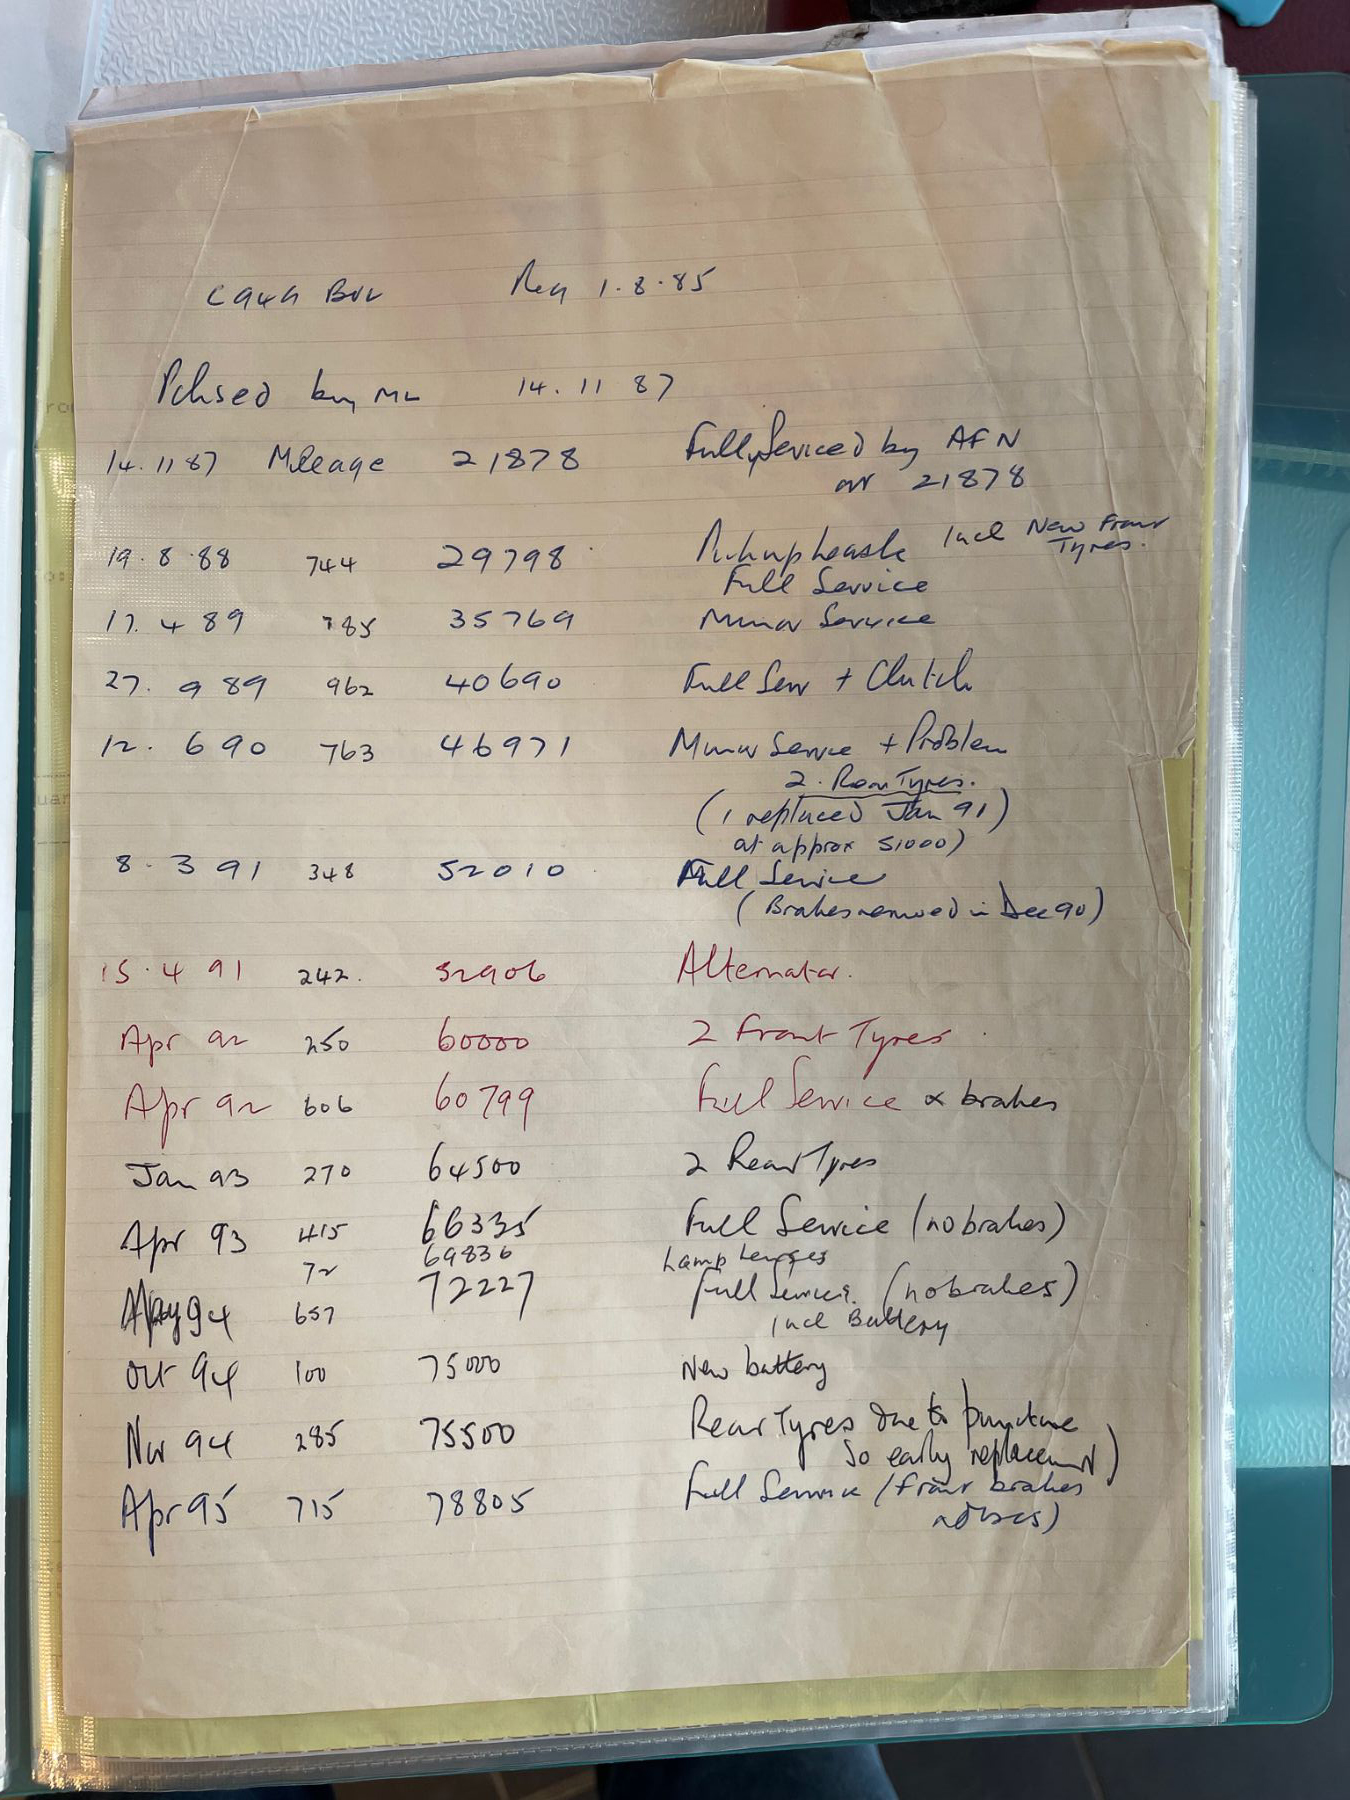 Reg 1.8.85
Pchsed by Me 14.11 87
14.11 87 Mileage 21878 Fully Serviced by AFN
at 21878
19.8.88 744 29798 Incl New Front
Tyres.
Full Service
17. 4 89 785 35769 Minor Service
27. 9 89 962 40690 Full Serv + Clutch
12. 6 90 763 46971 Minor Service + Problem
2. Rear Tyres.
(1 replaced Jan 91)
at approx 51000)
8. 3 91 348 52010 Full Service
(Brakes renewed in Dec 90)
15. 4 91 242. 52906 Alternator.
Apr 92 250 60000 2 Front Tyres
Apr 92 606 60799 Full Service & brakes
Jan 93 270 64500 2 Rear Tyres
Apr 93 415 66335 Full Service (no brakes)
72 69836 Lamp Lenses
May 94 657 72227 Full Service. (no brakes)
incl Battery
Oct 94 100 75000 New battery
Nov 94 285 75500 Rear Tyres due to puncture
so early replacement)
Apr 95 715 78805 Full Service (front brakes